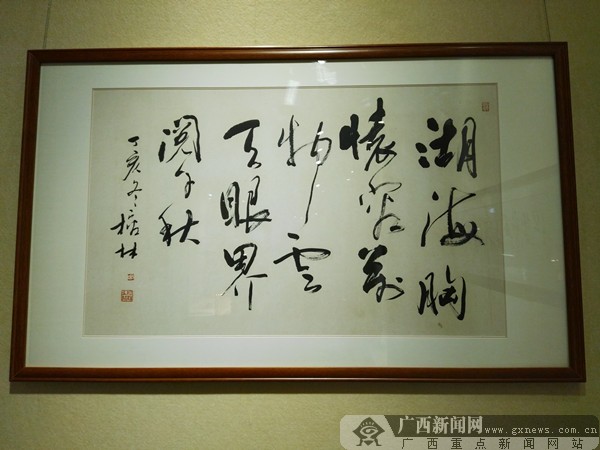 湖海胸
懷容萬
物雲
天眼界
閱千秋
丁亥冬 林
广西新闻网
www.gxnews.com.cn
广西重点新闻网站